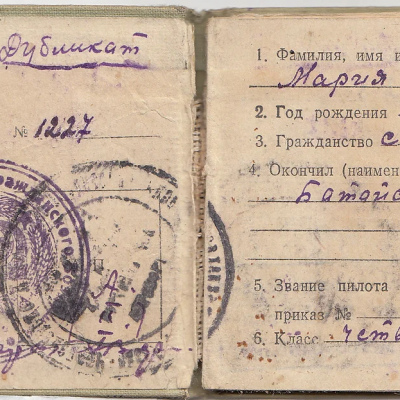 Дубликат
№ 1227
ражданского Во
1. Фамилия, имя и
Мария
2. Год рождения
3. Гражданство С
4. Окончил (наимен
Батайс
5. Звание пилота
приказ №
6. Класс четв